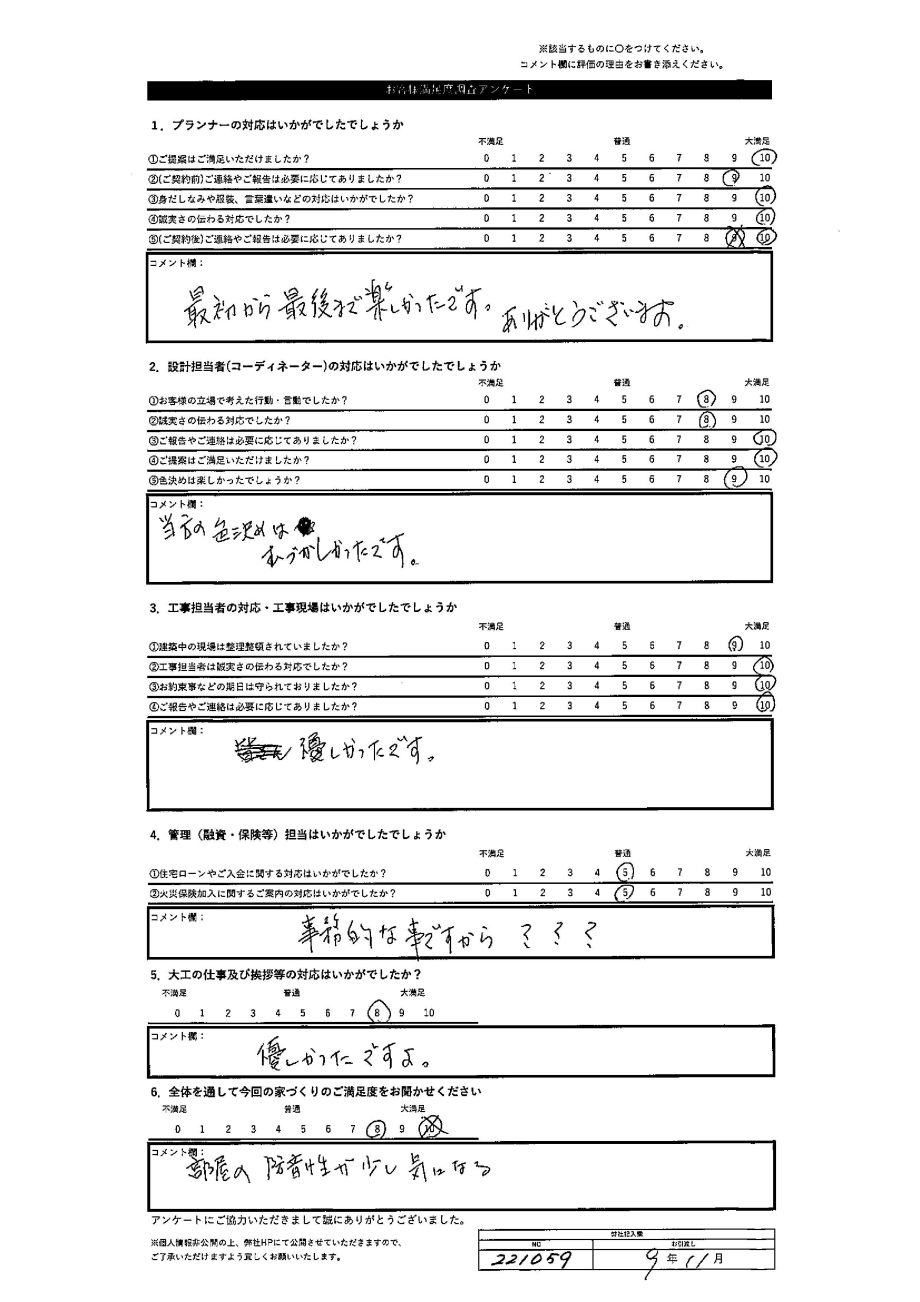 ※該当するものに〇をつけてください。
コメント欄に評価の理由をお書き添えください。
お客様満足度調査アンケート
1．プランナーの対応はいかがでしたでしょうか
不満足 普通 大満足
①ご提案はご満足いただけましたか？ 0 1 2 3 4 5 6 7 8 9 10
②(ご契約前)ご連絡やご報告は必要に応じてありましたか？ 0 1 2 3 4 5 6 7 8 9 10
③身だしなみや服装、言葉遣いなどの対応はいかがでしたか？ 0 1 2 3 4 5 6 7 8 9 10
④誠実さの伝わる対応でしたか？ 0 1 2 3 4 5 6 7 8 9 10
⑤(ご契約後)ご連絡やご報告は必要に応じてありましたか？ 0 1 2 3 4 5 6 7 8 9 10
コメント欄：
最初から最後まで楽しかったです。ありがとうございます。
2．設計担当者(コーディネーター)の対応はいかがでしたでしょうか
不満足 普通 大満足
①お客様の立場で考えた行動・言動でしたか？ 0 1 2 3 4 5 6 7 8 9 10
②誠実さの伝わる対応でしたか？ 0 1 2 3 4 5 6 7 8 9 10
③ご報告やご連絡は必要に応じてありましたか？ 0 1 2 3 4 5 6 7 8 9 10
④ご提案はご満足いただけましたか？ 0 1 2 3 4 5 6 7 8 9 10
⑤色決めは楽しかったでしょうか？ 0 1 2 3 4 5 6 7 8 9 10
コメント欄：
当方の色決めは
むづかしかったです。
3．工事担当者の対応・工事現場はいかがでしたでしょうか
不満足 普通 大満足
①建築中の現場は整理整頓されていましたか？ 0 1 2 3 4 5 6 7 8 9 10
②工事担当者は誠実さの伝わる対応でしたか？ 0 1 2 3 4 5 6 7 8 9 10
③お約束事などの期日は守られておりましたか？ 0 1 2 3 4 5 6 7 8 9 10
④ご報告やご連絡は必要に応じてありましたか？ 0 1 2 3 4 5 6 7 8 9 10
コメント欄：
優しかったです。
4．管理（融資・保険等）担当はいかがでしたでしょうか
不満足 普通 大満足
①住宅ローンやご入金に関する対応はいかがでしたか？ 0 1 2 3 4 5 6 7 8 9 10
②火災保険加入に関するご案内の対応はいかがでしたか？ 0 1 2 3 4 5 6 7 8 9 10
コメント欄：
事務的な事ですから ？ ？ ？
5．大工の仕事及び挨拶等の対応はいかがでしたか？
不満足 普通 大満足
0 1 2 3 4 5 6 7 8 9 10
コメント欄：
優しかったですよ。
6．全体を通して今回の家づくりのご満足度をお聞かせください
不満足 普通 大満足
0 1 2 3 4 5 6 7 8 9 10
コメント欄：
部屋の防音性が少し気になる
アンケートにご協力いただきまして誠にありがとうございました。
※個人情報非公開の上、弊社HPにて公開させていただきますので、
ご了承いただけますよう宜しくお願いいたします。
弊社記入欄
NO お引渡し
221059 9年11月